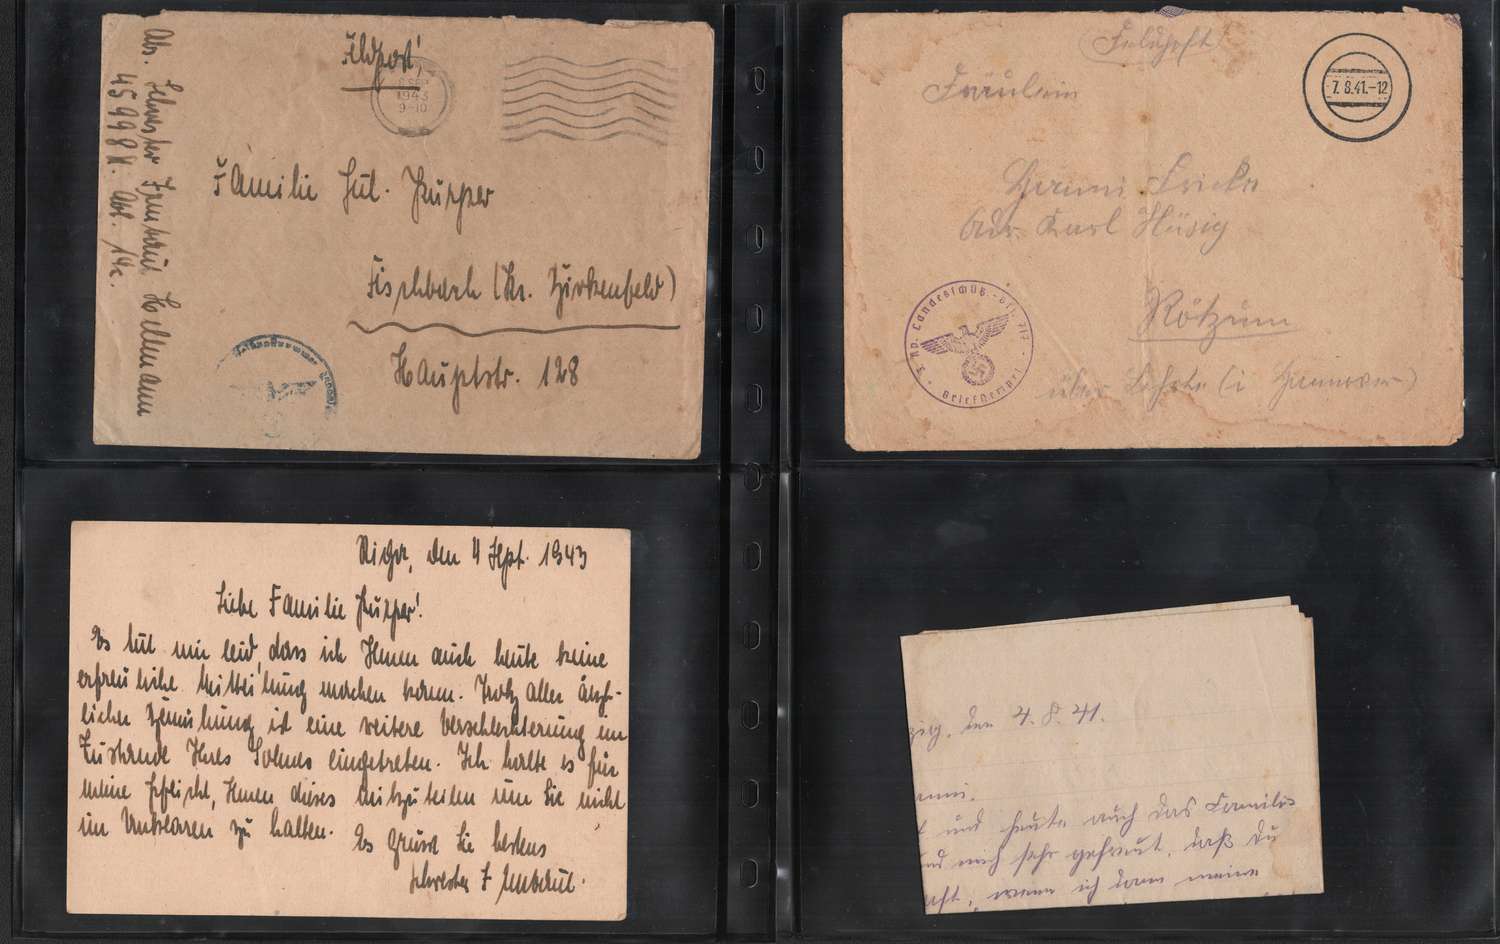 Feldpost!
1943
9-10
Abs. Schwester Irmtraut Hellmann
45998 K. Abt. 14c.
Familie Gul. Kupper
Fischbach (Kr. Birkenfeld)
Hauptstr. 128
Riga, den 4 Sept. 1943
Liebe Familie Kupper!
Es tut mir leid, dass ich Ihnen auch heute keine
erfreuliche Mitteilung machen kann. Trotz aller ärzt-
licher Bemühung ist eine weitere Verschlechterung im
Zustande Ihres Sohnes eingetreten. Ich halte es für
meine Pflicht, Ihnen dieses mitzuteilen um Sie nicht
im Unklaren zu halten.
Es grüsst Sie bestens
Schwester I
Feldpost
7.8.41.-12
Fräulein
Hermi Fricke
Adr. Karl Hüsig
Rötzum
über Lehrte (i Hannover)
Landesschütz.
Briefstempel
zig, den 4. 8. 41.
und heute auch das Familie
und mich sehr gefreut, daß Du
wenn ich dann meine